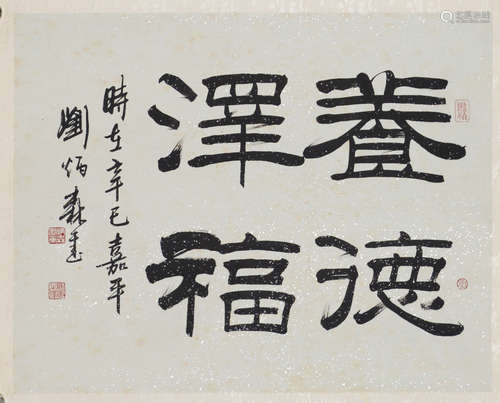 養德
澤福
時在辛巳嘉平
劉炳森